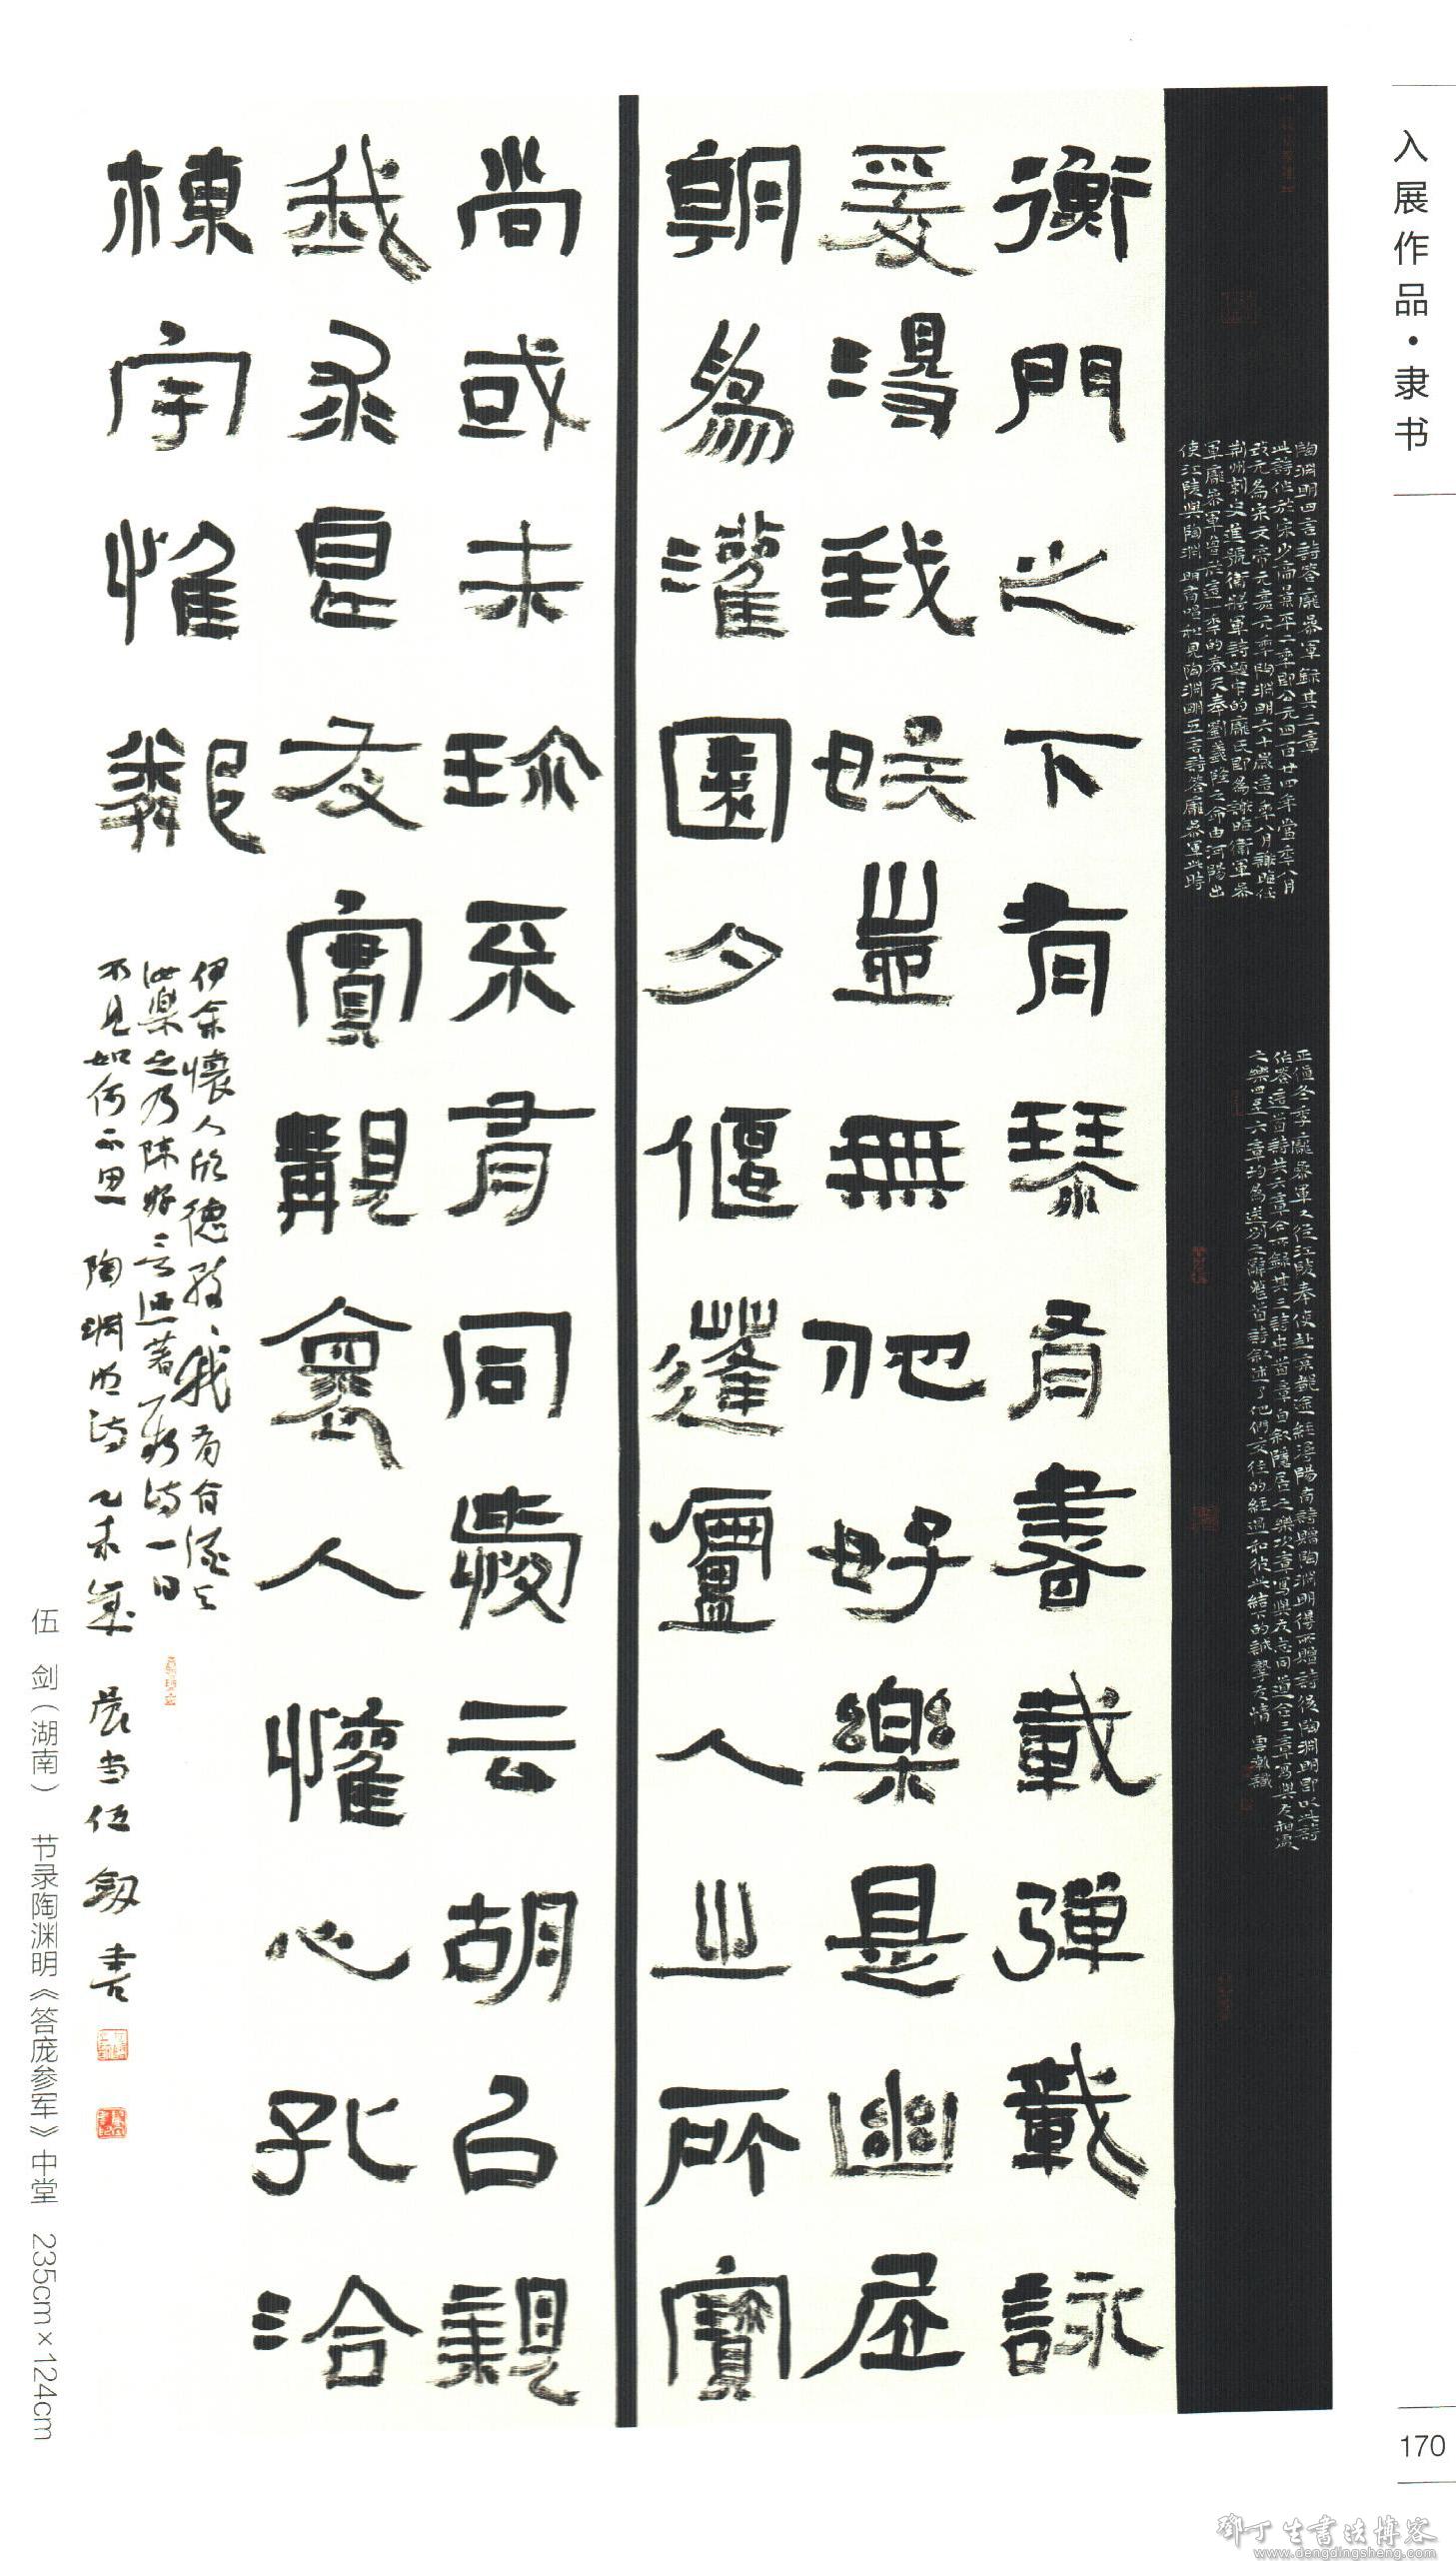 入展作品·隶书
陶淵明四言詩答龐參軍録其三章
此詩作於宋少帝景平二年即公元四百廿四年當年八月
改元為宋文帝元嘉元年陶淵明六十歲這年八月謝晦任
荆州刺史進號衛將軍詩題中的龐氏即為謝晦衛軍參
軍龐參軍曾於這一年的春天奉劉義隆之命由潯陽出
使江陵與陶淵明有唱和見陶淵明五言詩答龐參軍此時
正值冬季龐參軍又從江陵奉使赴京都途經潯陽有詩贈陶淵明得所贈詩後陶淵明即以此詩
作答這首詩共六章今所録其三詩中首章自叙隱居之樂次章寫與友志同道合三章寫與友相處
之樂四至六章均為送別之辭首詩叙述了他們交往的經過和彼此結下的誠摯友情
衡門之下有琴有書載彈載詠
爰得我娛豈無他好樂是幽居
朝為灌園夕偃蓬廬人之所寶
尚或未珍不有同愛云胡以親
我求良友實覯懷人懽心孔洽
棟宇惟鄰
伊余懷人欣德孜孜我有旨酒與
汝樂之乃陳好言迺著新詩一日
不見如何不思 陶淵明詩 乙未歲 伍劍書
伍 剑（湖南） 节录陶渊明《答庞参军》中堂 235cm×124cm
170
鄧丁生書法博客
www.dengdingsheng.com